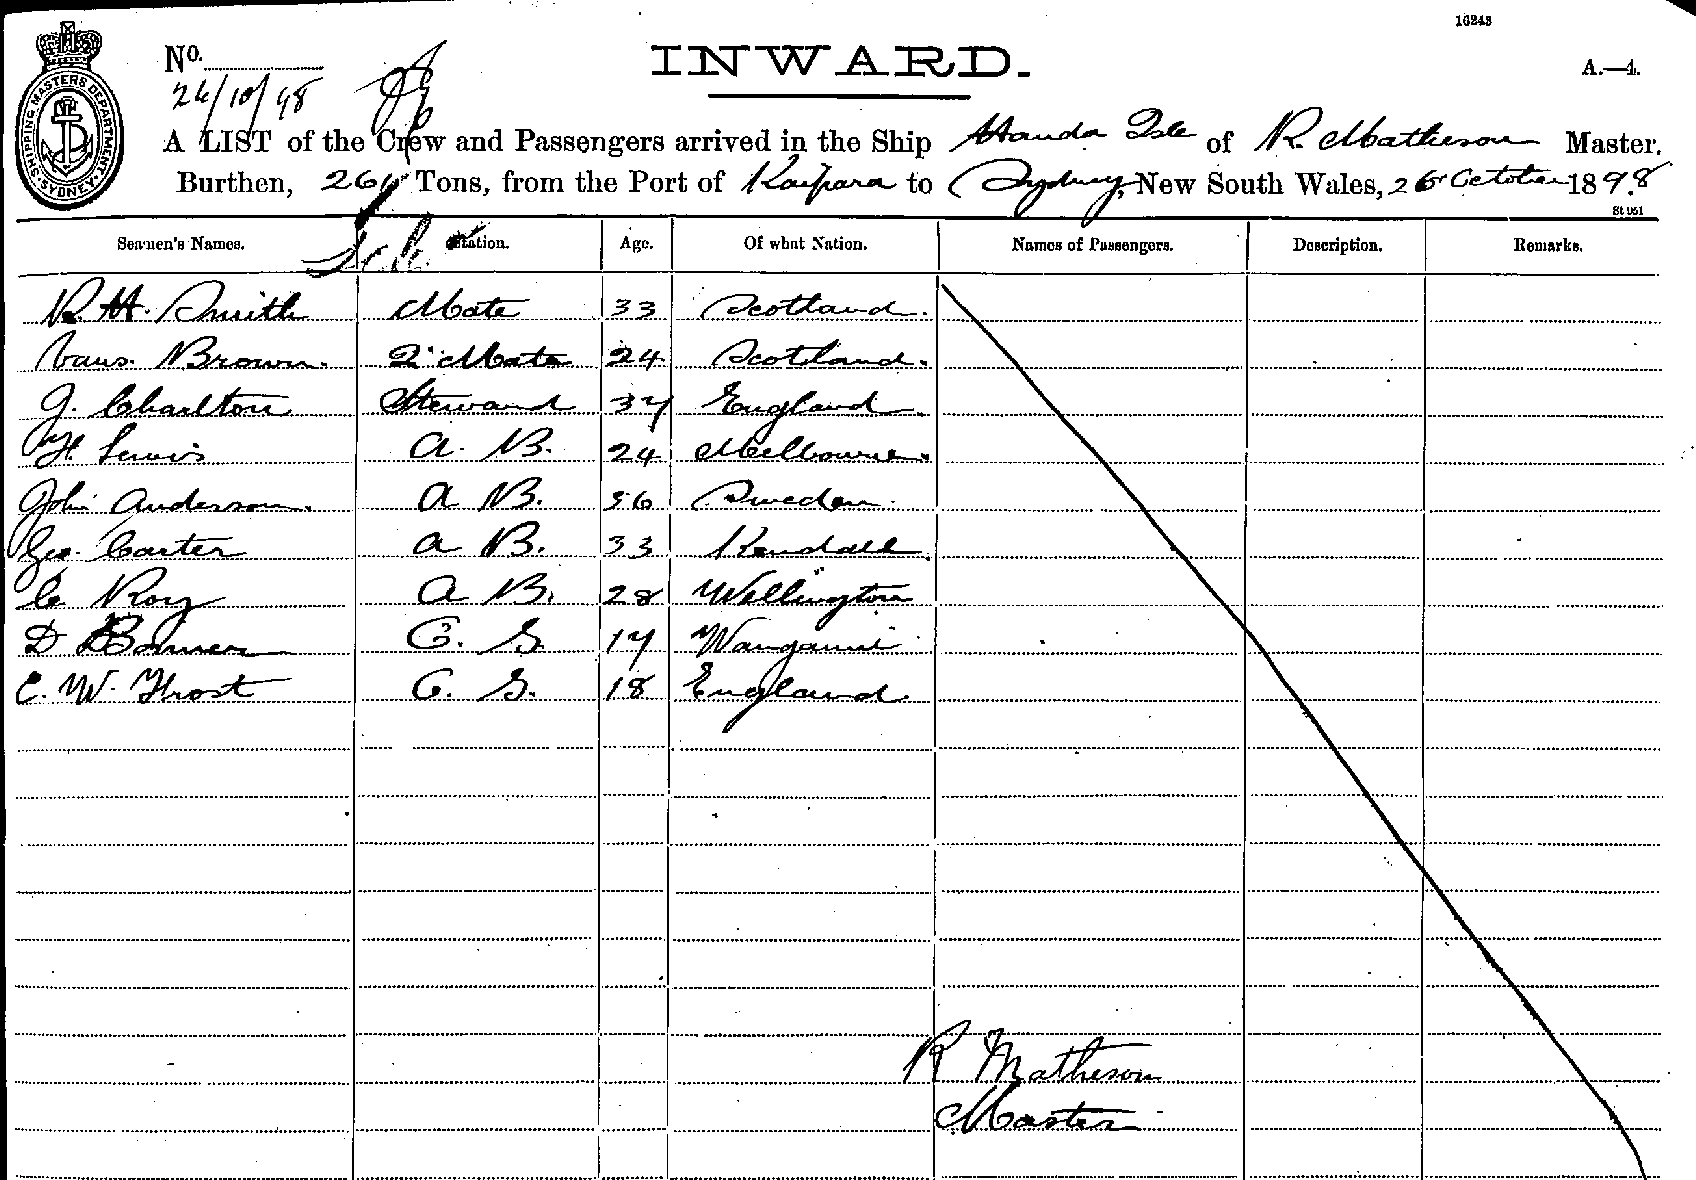 16243
No.
INWARD.
A.—4.
SHIPPING MASTERS DEPARTMENT. SYDNEY.
24/10/98
A LIST of the Crew and Passengers arrived in the Ship Handa Isle of R. Matheson Master,
Burthen, 261 Tons, from the Port of Kaipara to Sydney, New South Wales, 26 October 1898
St 951
Seamen's Names. Station. Age. Of what Nation. Names of Passengers. Description. Remarks.
R. H. Smith Mate 33 Scotland.
Vans. Brown. 2d Mate 24 Scotland.
J. Charlton Steward 37 England.
H. Lewis A. B. 24 Melbourne.
John Anderson. A B. 56 Sweden.
Geo. Carter A B. 33 Kendall.
C. Roy A B. 28 Wellington
D O. S. 17 Wanganui
C. W. Frost O. S. 18 England.
R Matheson
Master